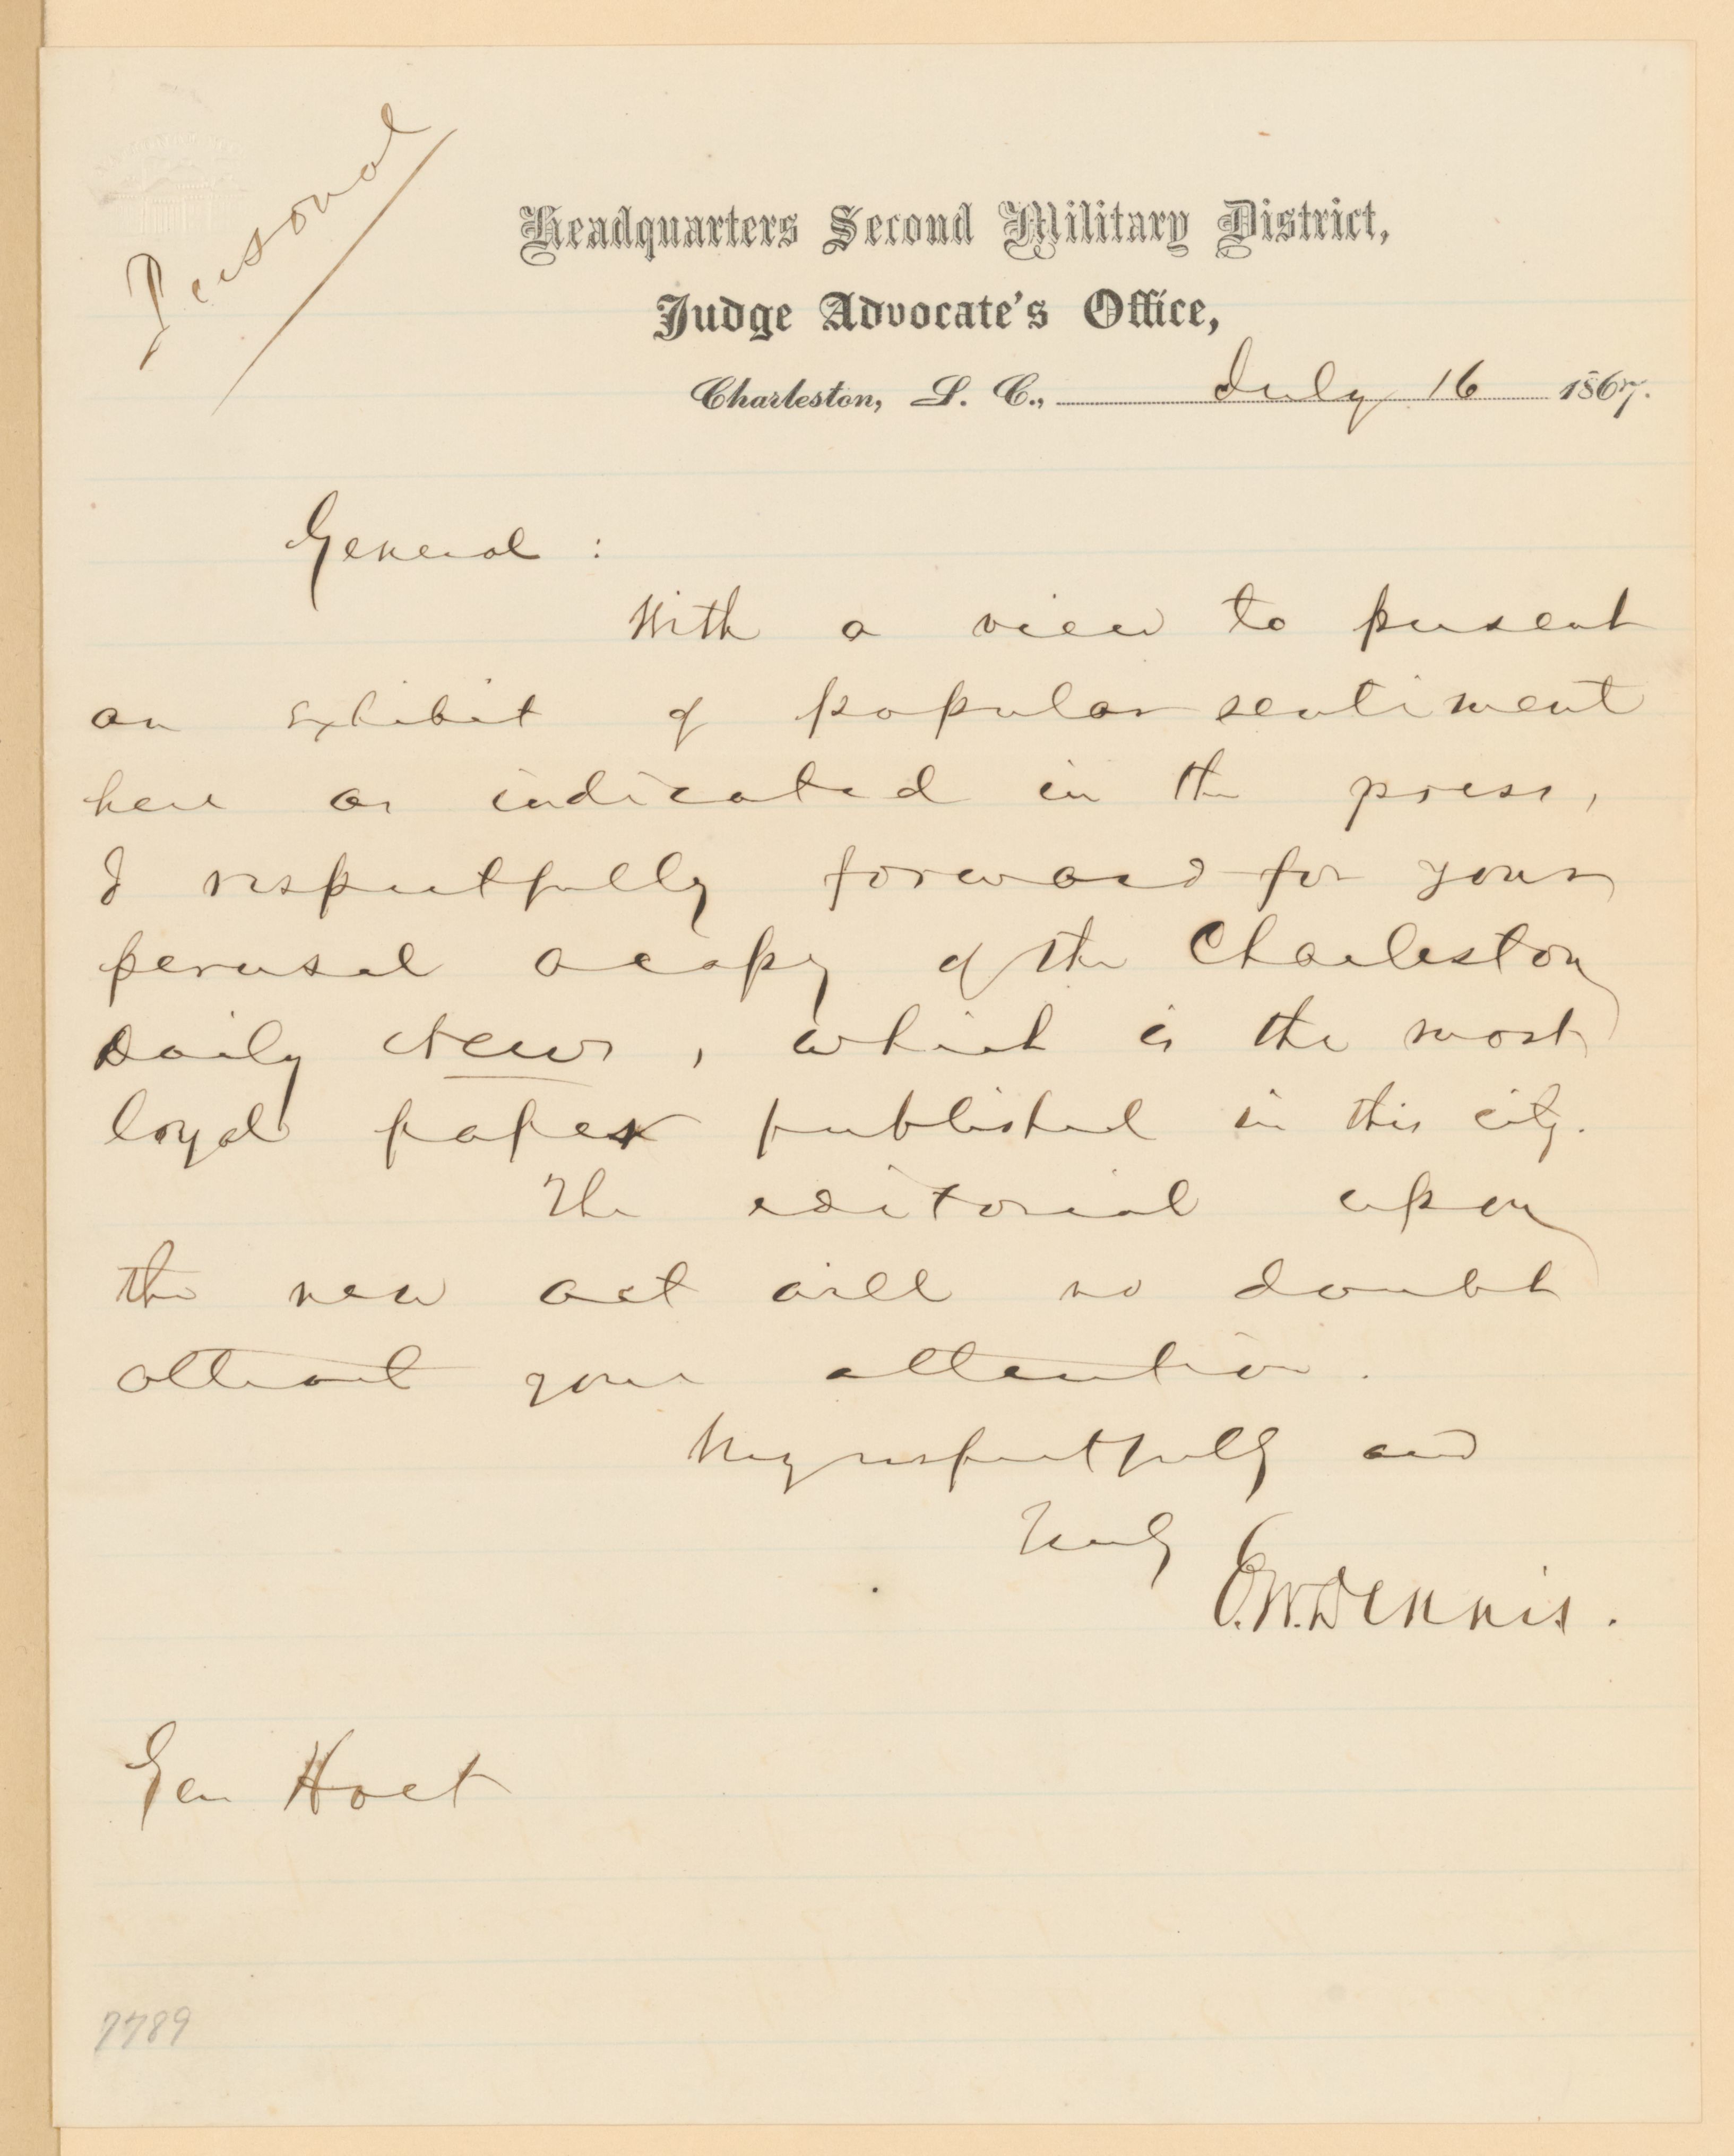 Personal
Headquarters Second Military District,
Judge Advocate's Office,
Charleston, S. C., July 16 1867.
General :
With a view to present
an exhibit of popular sentiment
here as indicated in the press,
I respectfully forward for your
perusal a copy of the Charleston
Daily News, which is the most
loyal paper published in this city.
The editorial upon
the new act will no doubt
attract your attention.
Very respectfully and
Truly
E.W. Dennis.
Gen Holt
7789